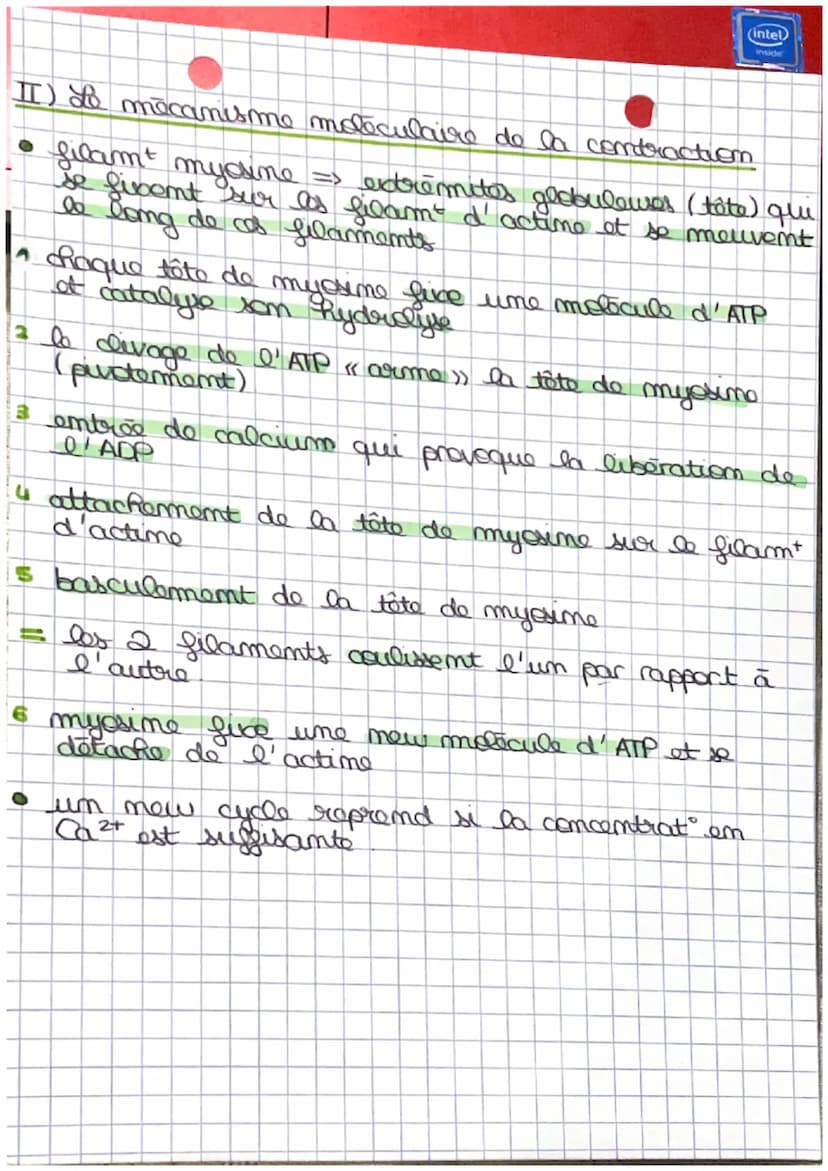 intel
inside
II) Le mécanisme moléculaire de la contraction
• filamt myosine => extrémités globulaires (tête) qui
se fixent sur les filamt d'actine et se meuvent
le long de ces filaments
1 chaque tête de myosine fixe une molécule d'ATP
et catalyse son hydrolyse
2 le clivage de l'ATP « arme » la tête de myosine
(pivotement)
3 entrée de calcium qui provoque la libération de
l'ADP
4 attachement de la tête de myosine sur le filamt
d'actine
5 basculement de la tête de myosine
= les 2 filaments coulissent l'un par rapport à
l'autre.
6 myosine fixe une new molécule d'ATP et se
détache de l'actine
• un new cycle reprend si la concentrat° en
Ca²⁺ est suffisante.